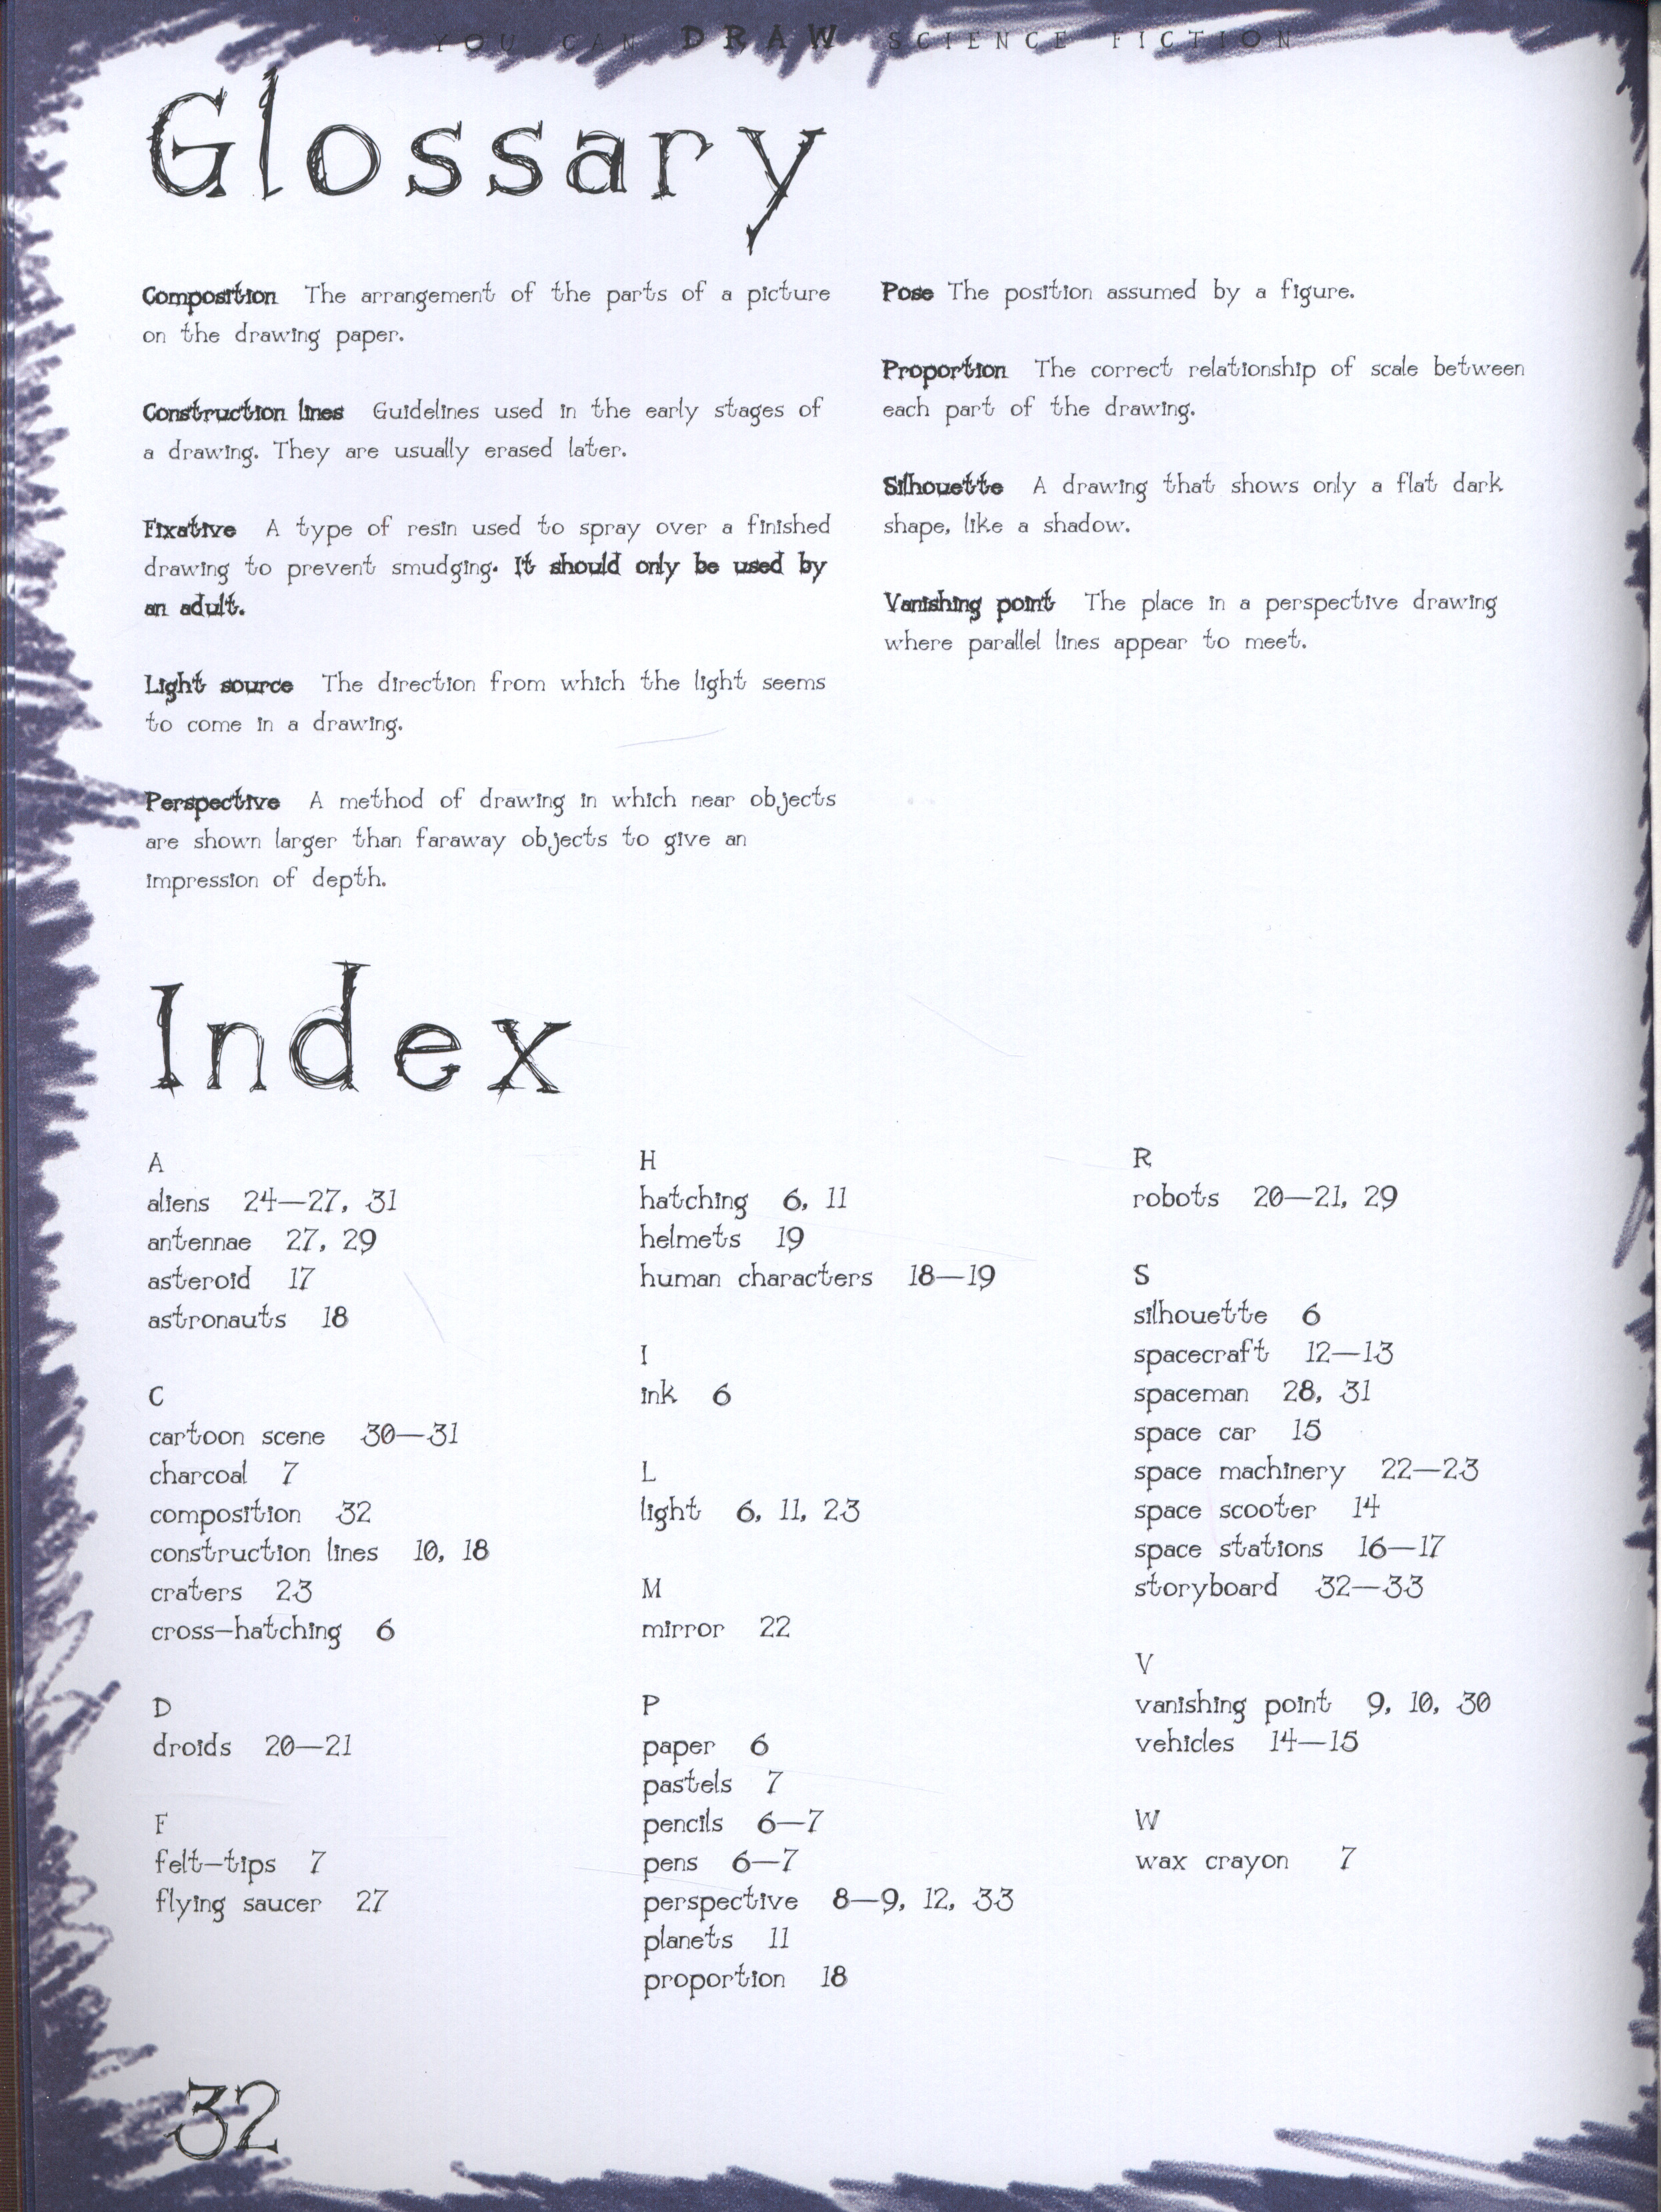 YOU CAN DRAW SCIENCE FICTION
Glossary
Composition The arrangement of the parts of a picture
on the drawing paper.
Construction lines Guidelines used in the early stages of
a drawing. They are usually erased later.
Fixative A type of resin used to spray over a finished
drawing to prevent smudging. It should only be used by
an adult.
Light source The direction from which the light seems
to come in a drawing.
Perspective A method of drawing in which near objects
are shown larger than faraway objects to give an
impression of depth.
Pose The position assumed by a figure.
Proportion The correct relationship of scale between
each part of the drawing.
Silhouette A drawing that shows only a flat dark
shape, like a shadow.
Vanishing point The place in a perspective drawing
where parallel lines appear to meet.
Index
A
aliens 24—27, 31
antennae 27, 29
asteroid 17
astronauts 18
C
cartoon scene 30—31
charcoal 7
composition 32
construction lines 10, 18
craters 23
cross-hatching 6
D
droids 20—21
F
felt-tips 7
flying saucer 27
H
hatching 6, 11
helmets 19
human characters 18—19
I
ink 6
L
light 6, 11, 23
M
mirror 22
P
paper 6
pastels 7
pencils 6—7
pens 6—7
perspective 8—9, 12, 33
planets 11
proportion 18
R
robots 20—21, 29
S
silhouette 6
spacecraft 12—13
spaceman 28, 31
space car 15
space machinery 22—23
space scooter 14
space stations 16—17
storyboard 32—33
V
vanishing point 9, 10, 30
vehicles 14—15
W
wax crayon 7
32